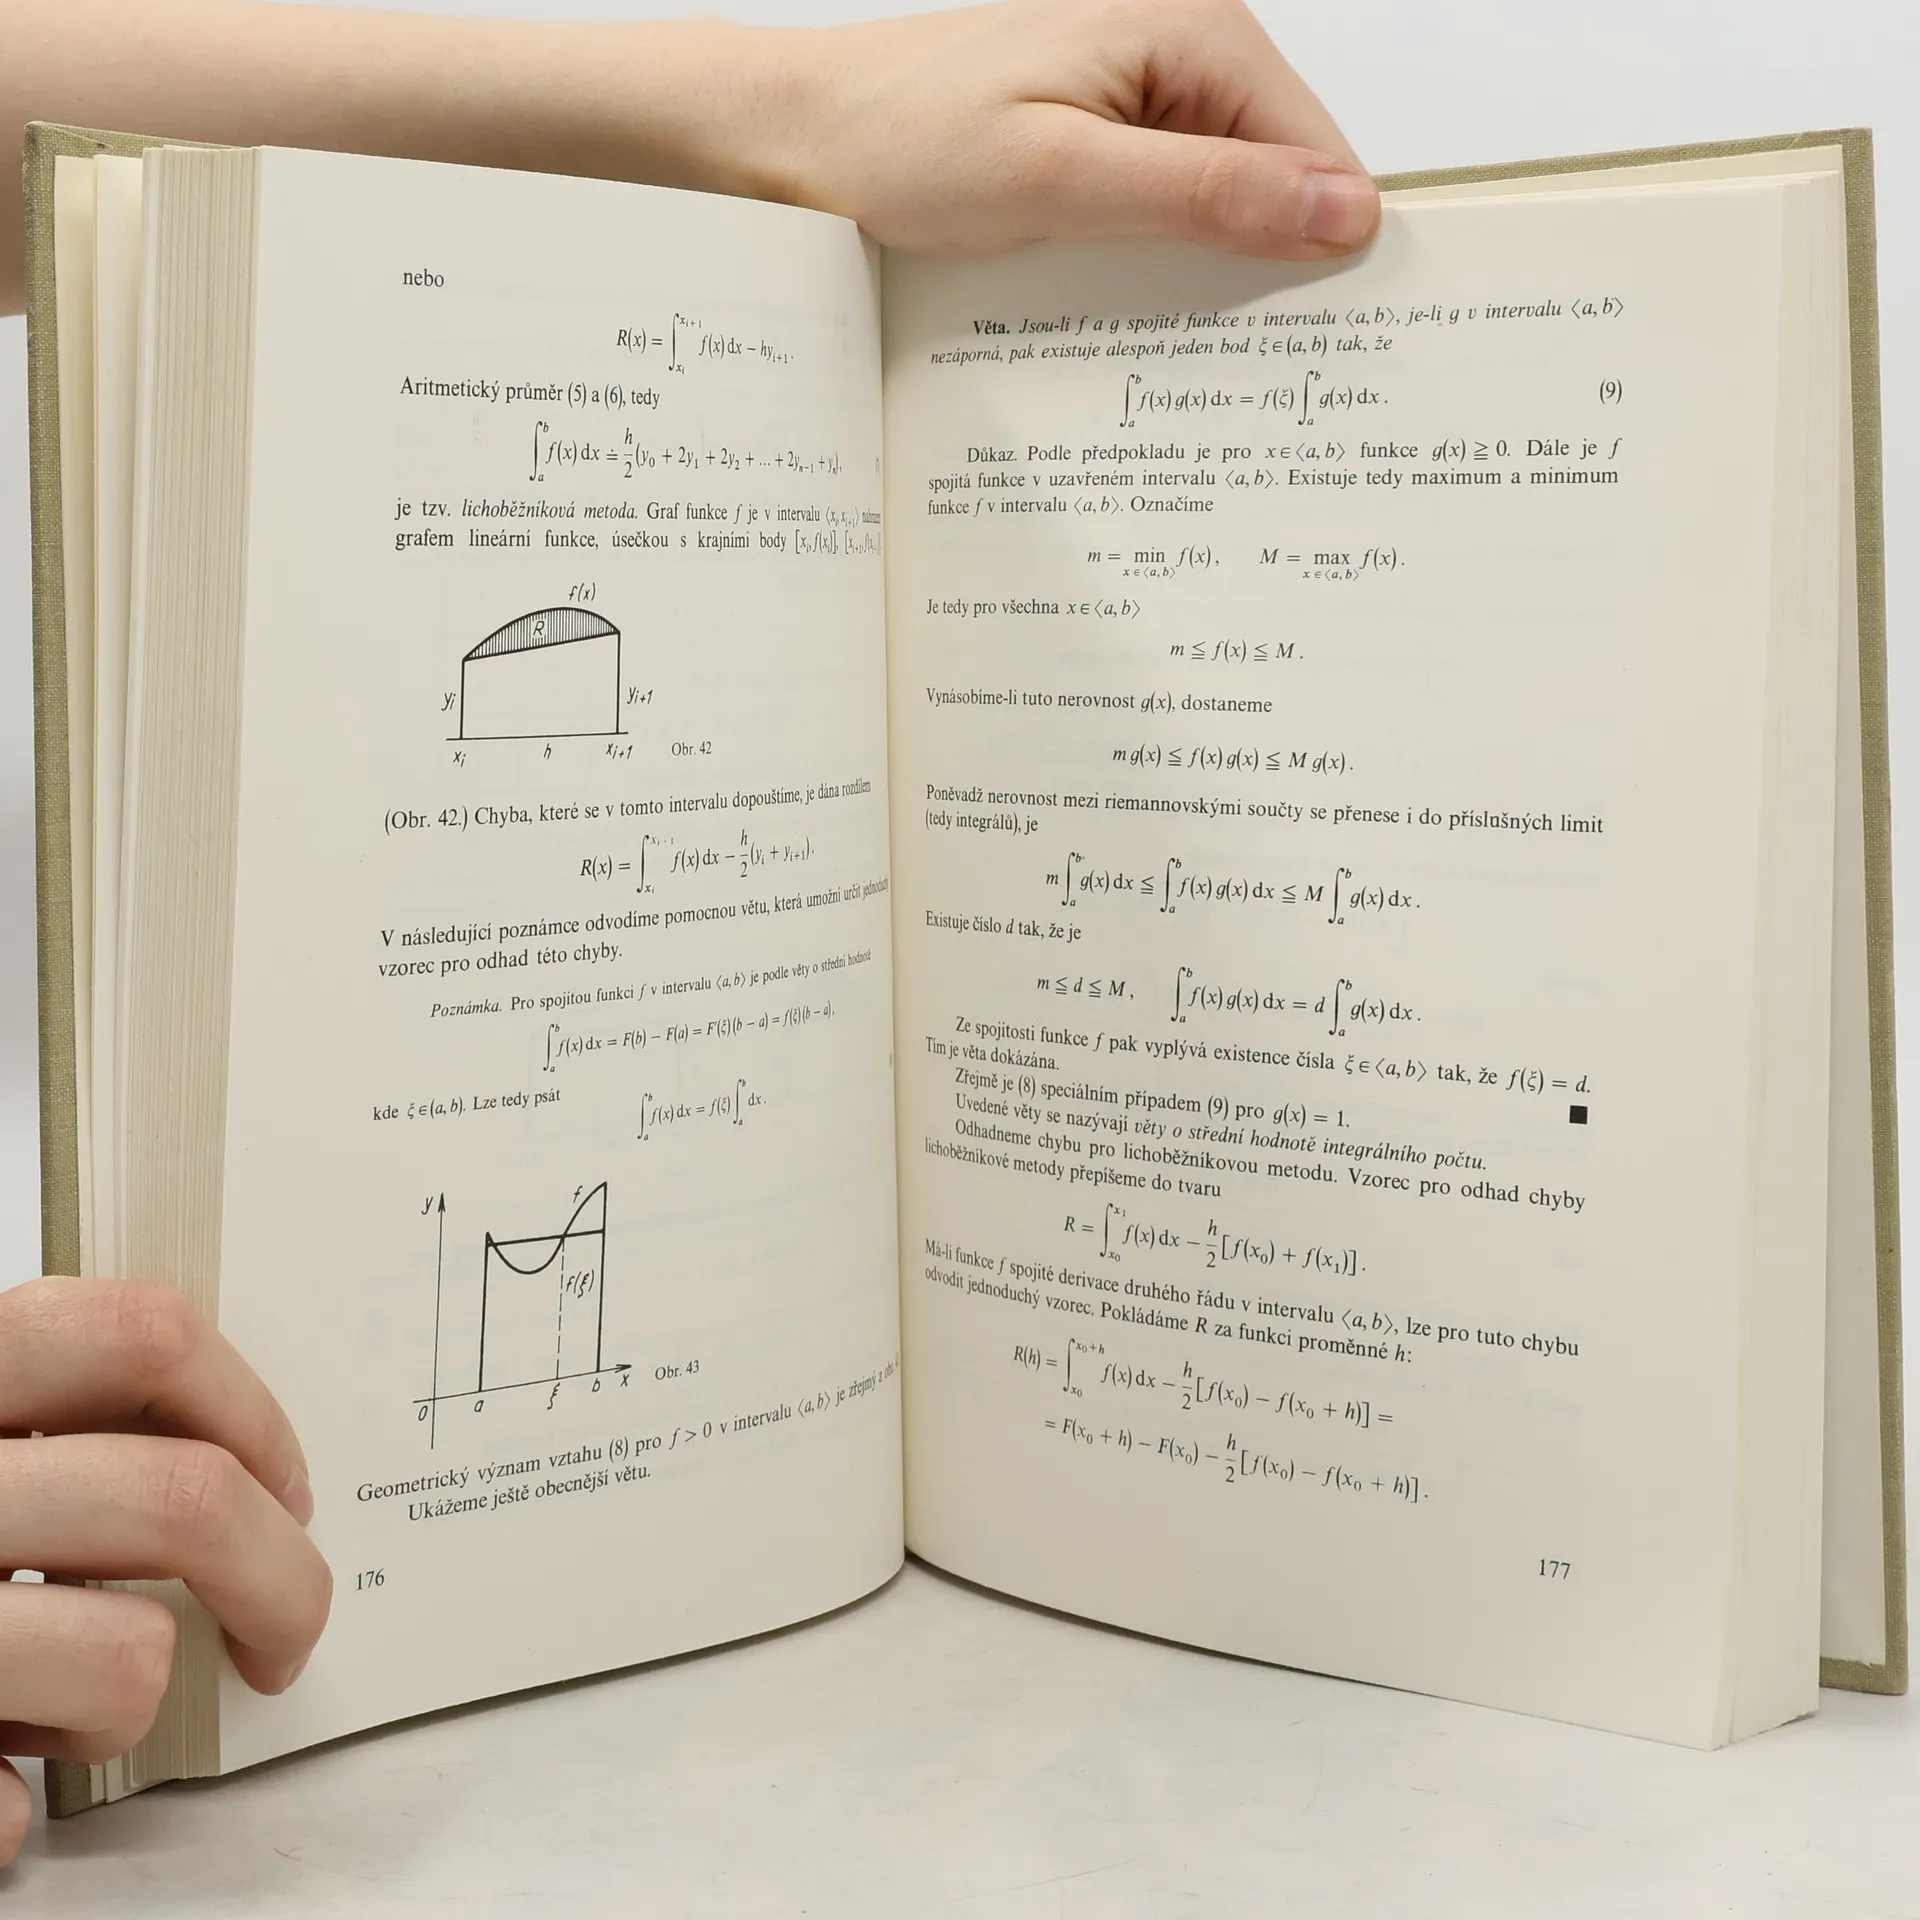 nebo
R(x) = ∫_{x_i}^{x_{i+1}} f(x) dx − hy_{i+1}.
Aritmetický průměr (5) a (6), tedy
∫_a^b f(x) dx ≐ h/2 (y_0 + 2y_1 + 2y_2 + ... + 2y_{n−1} + y_n),
je tzv. lichoběžníková metoda. Graf funkce f je v intervalu ⟨x_i, x_{i+1}⟩
grafem lineární funkce, úsečkou s krajními body [x_i, f(x_i)], [x_{i+1}, f(x_{i+1})]
f(x)
R
y_i
y_{i+1}
x_i h x_{i+1} Obr. 42
(Obr. 42.) Chyba, které se v tomto intervalu dopouštíme, je dána rozdílem
R(x) = ∫_{x_i}^{x_{i+1}} f(x) dx − h/2 (y_i + y_{i+1}).
V následující poznámce odvodíme pomocnou větu, která umožní určit jednoduchý
vzorec pro odhad této chyby.
Poznámka. Pro spojitou funkci f v intervalu ⟨a, b⟩ je podle věty o střední hodnotě
∫_a^b f(x) dx = F(b) − F(a) = F′(ξ)(b − a) = f(ξ)(b − a),
kde ξ ∈ (a, b). Lze tedy psát
∫_a^b f(x) dx = f(ξ) ∫_a^b dx.
y
f
f(ξ)
0 a ξ b x Obr. 43
Geometrický význam vztahu (8) pro f > 0 v intervalu ⟨a, b⟩ je zřejmý z obr.
Ukážeme ještě obecnější větu.
176
Věta. Jsou-li f a g spojité funkce v intervalu ⟨a, b⟩, je-li g v intervalu ⟨a, b⟩
nezáporná, pak existuje alespoň jeden bod ξ ∈ (a, b) tak, že
∫_a^b f(x) g(x) dx = f(ξ) ∫_a^b g(x) dx. (9)
Důkaz. Podle předpokladu je pro x ∈ ⟨a, b⟩ funkce g(x) ≧ 0. Dále je f
spojitá funkce v uzavřeném intervalu ⟨a, b⟩. Existuje tedy maximum a minimum
funkce f v intervalu ⟨a, b⟩. Označíme
m = min_{x∈⟨a,b⟩} f(x), M = max_{x∈⟨a,b⟩} f(x).
Je tedy pro všechna x ∈ ⟨a, b⟩
m ≦ f(x) ≦ M.
Vynásobíme-li tuto nerovnost g(x), dostaneme
m g(x) ≦ f(x) g(x) ≦ M g(x).
Poněvadž nerovnost mezi riemannovskými součty se přenese i do příslušných limit
(tedy integrálů), je
m ∫_a^b g(x) dx ≦ ∫_a^b f(x) g(x) dx ≦ M ∫_a^b g(x) dx.
Existuje číslo d tak, že je
m ≦ d ≦ M, ∫_a^b f(x) g(x) dx = d ∫_a^b g(x) dx.
Ze spojitosti funkce f pak vyplývá existence čísla ξ ∈ ⟨a, b⟩ tak, že f(ξ) = d.
Tím je věta dokázána. ■
Zřejmě je (8) speciálním případem (9) pro g(x) = 1.
Uvedené věty se nazývají věty o střední hodnotě integrálního počtu.
Odhadneme chybu pro lichoběžníkovou metodu. Vzorec pro odhad chyby
lichoběžníkové metody přepíšeme do tvaru
R = ∫_{x_0}^{x_1} f(x) dx − h/2 [f(x_0) + f(x_1)].
Má-li funkce f spojité derivace druhého řádu v intervalu ⟨a, b⟩, lze pro tuto chybu
odvodit jednoduchý vzorec. Pokládáme R za funkci proměnné h:
R(h) = ∫_{x_0}^{x_0+h} f(x) dx − h/2 [f(x_0) − f(x_0 + h)] =
= F(x_0 + h) − F(x_0) − h/2 [f(x_0) − f(x_0 + h)].
177